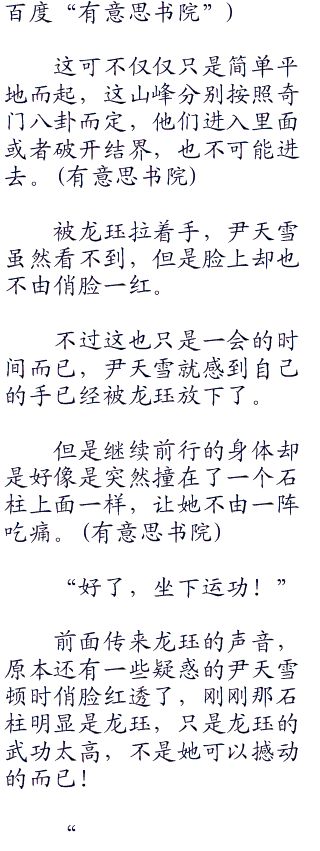 百度“有意思书院”)
这可不仅仅只是简单平
地而起，这山峰分别按照奇
门八卦而定，他们进入里面
或者破开结界，也不可能进
去。(有意思书院)
被龙珏拉着手，尹天雪
虽然看不到，但是脸上却也
不由俏脸一红。
不过这也只是一会的时
间而已，尹天雪就感到自己
的手已经被龙珏放下了。
但是继续前行的身体却
是好像是突然撞在了一个石
柱上面一样，让她不由一阵
吃痛。(有意思书院)
“好了，坐下运功！”
前面传来龙珏的声音，
原本还有一些疑惑的尹天雪
顿时俏脸红透了，刚刚那石
柱明显是龙珏，只是龙珏的
武功太高，不是她可以撼动
的而已！
“